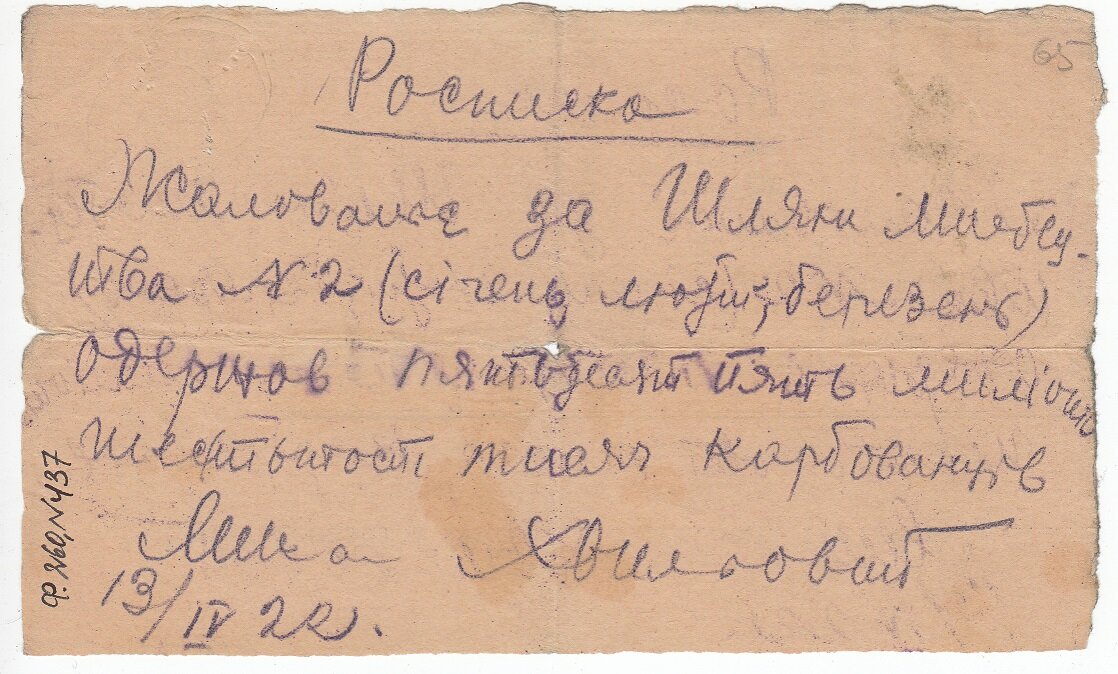 65
Росписка
Жалования за Шляхи Мистец-
тва N 2 (січень, лютий, березень)
одержав пятьдесят пять миліонів
шестьтсот тисяч карбованців
Мик Хвильовий
13/IV 22.
Ф. 260, N437